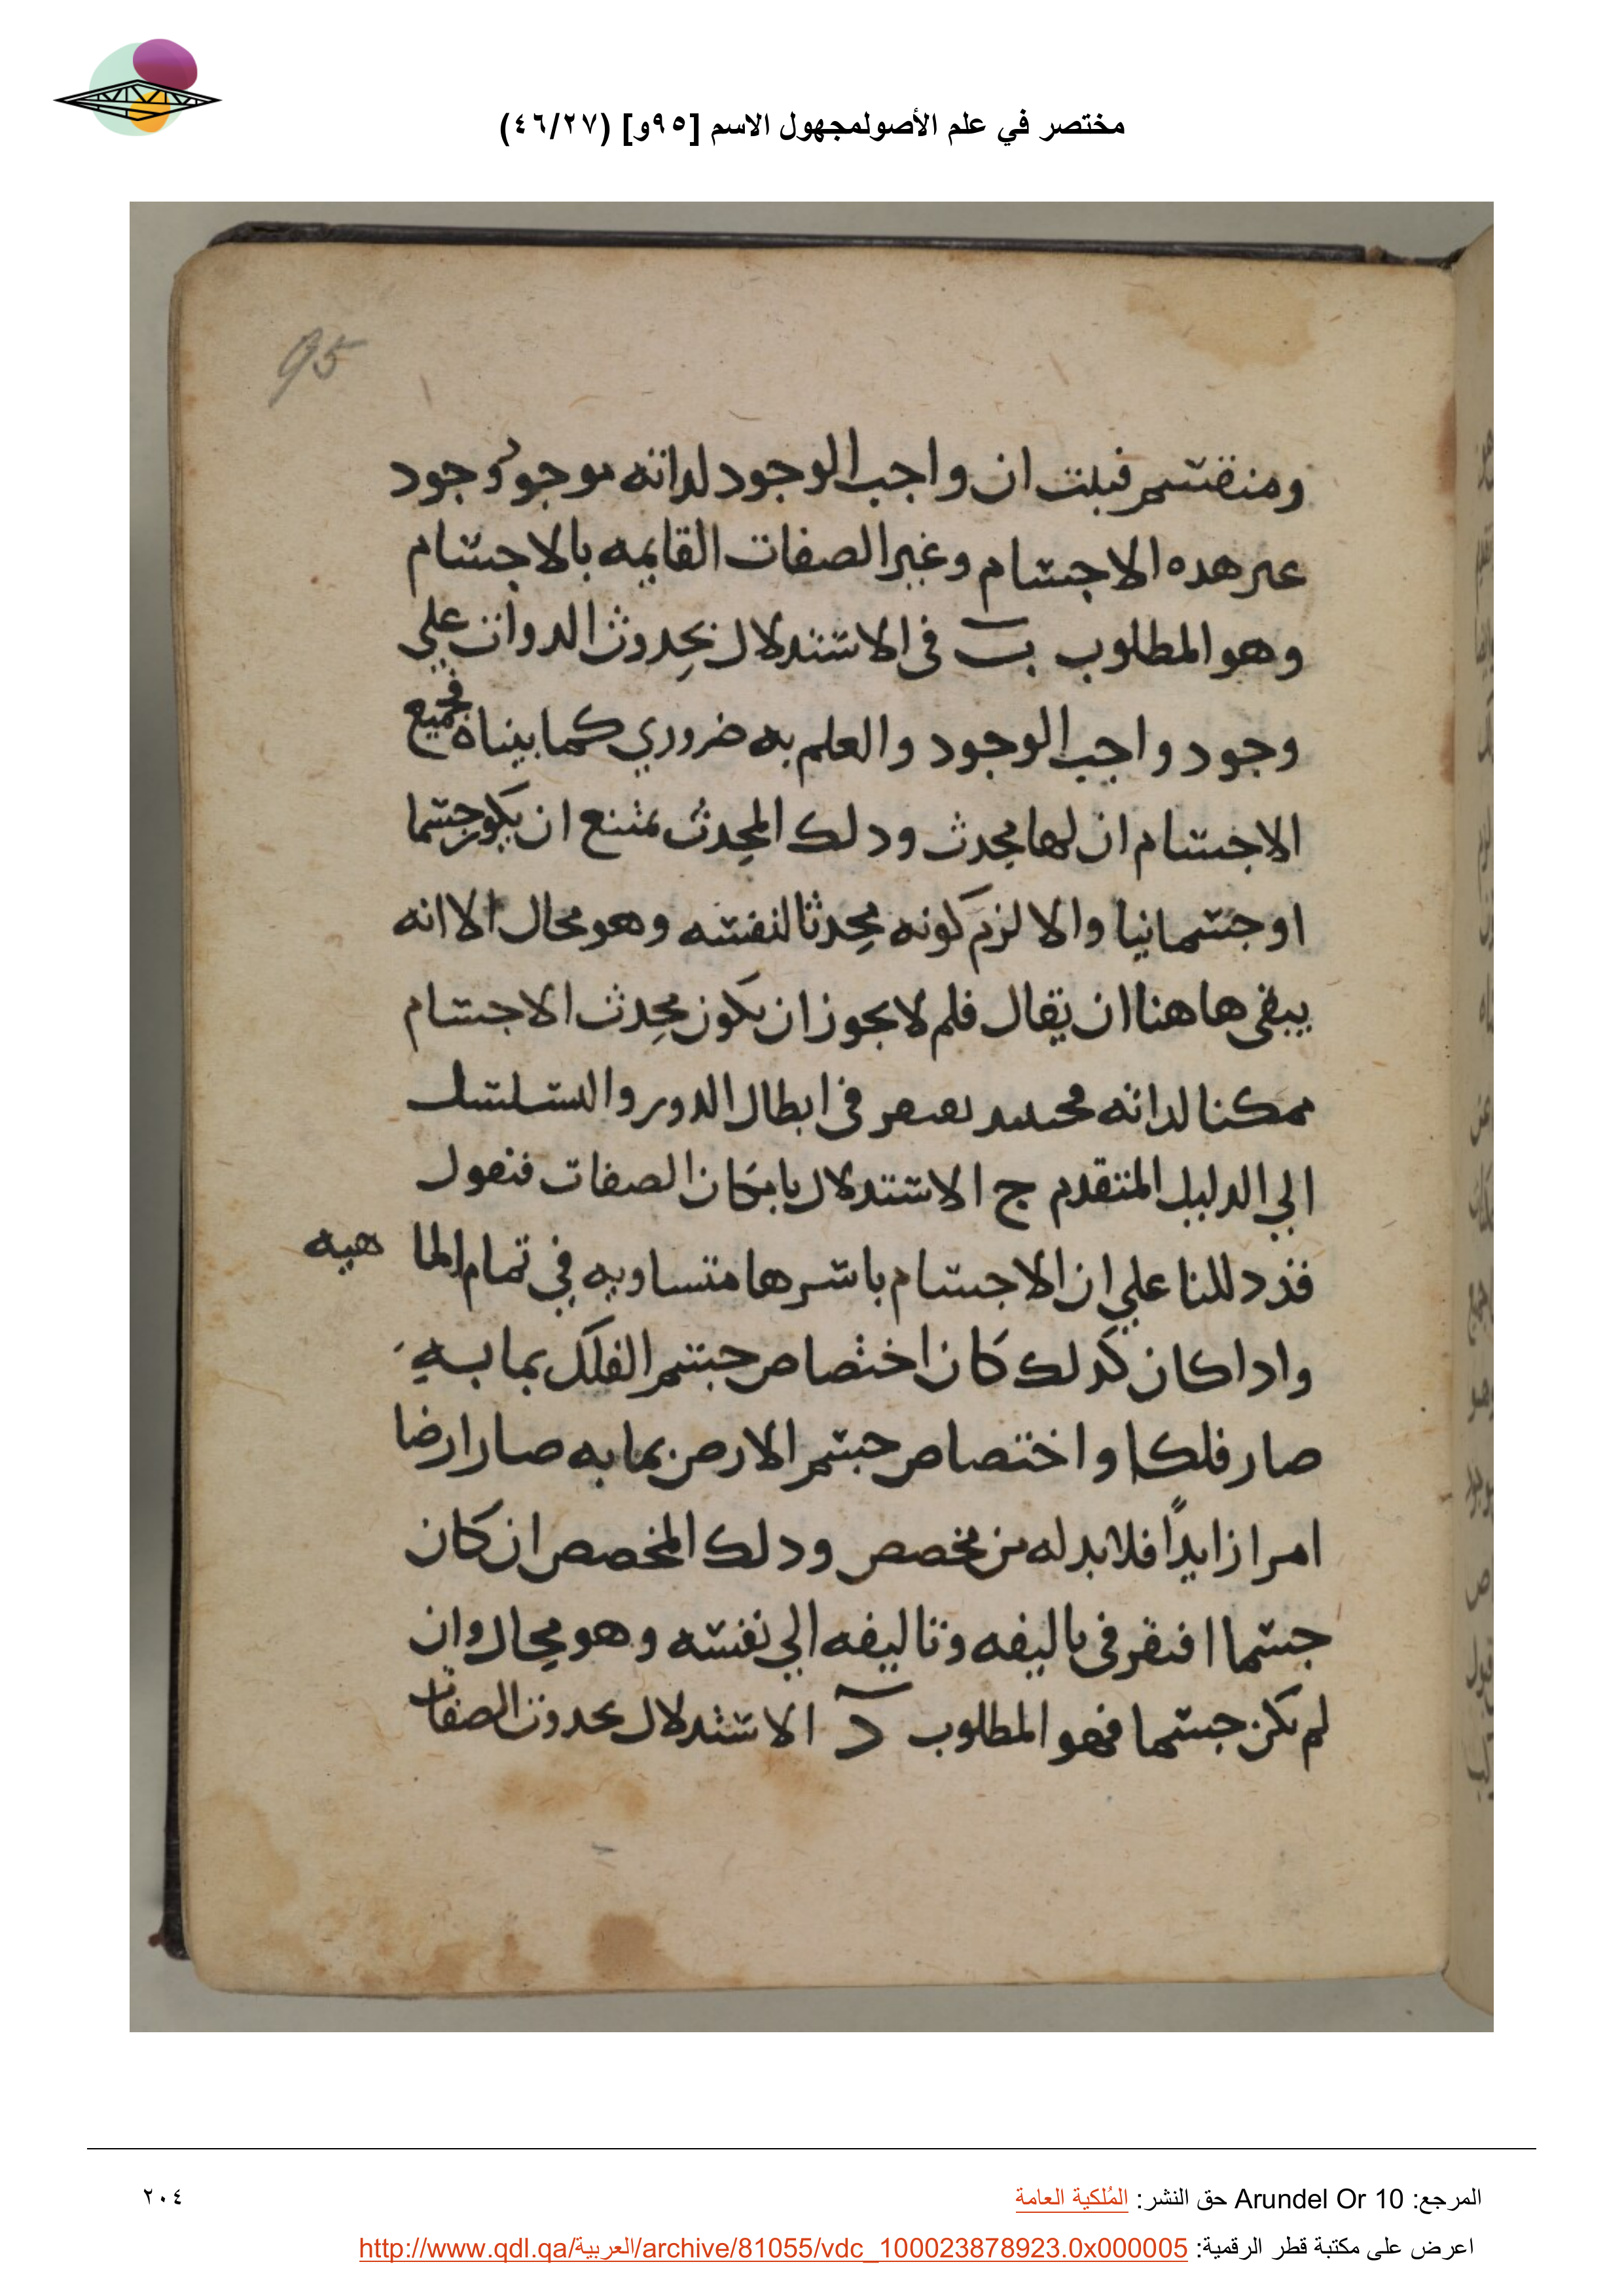 مختصر في علم الأصولمجهول الاسم [٩٥و] (٤٦/٢٧)
95
ومنقسم فبلت ان واجب الوجود لداته موجود وجود
عىر هده الاجسام وغير الصفات القايمه بالاجسام
وهو المطلوب ب في الاستدلال بحدوث الدوات علي
وجود واجب الوجود والعلم به ضروري كما بيناه فجميع
الاجسام ان لها محدث ودلك المحدث يمتنع ان يكون جسما
او جسمانيا والا لزم كونه محدثا لنفسه وهو محال الا انه
يبقى هاهنا ان يقال فلم لا يجوز ان يكون محدث الاجسام
ممكنا لداته في ابطال الدور والتسلسل
الي الدليل المتقدم ج الاستدلال بامكان الصفات فنقول
قد دللنا علي ان الاجسام باسرها متساويه في تمام الما هيه
وادا كان كدلك كان اختصاص جسم الفلك بما به
صار فلكا واختصاص جسم الارض بما به صار ارضا
امرا زايداً فلا بد له من مخصص ودلك المخصص ان كان
جسما افتقر في تاليفه وتاليفه الي نفسه وهو محال وان
لم يكن جسما فهو المطلوب د الاستدلال بحدوث الصفات
المرجع: Arundel Or 10 حق النشر: المُلكية العامة
٢٠٤
اعرض على مكتبة قطر الرقمية: http://www.qdl.qa/العربية/archive/81055/vdc_100023878923.0x000005